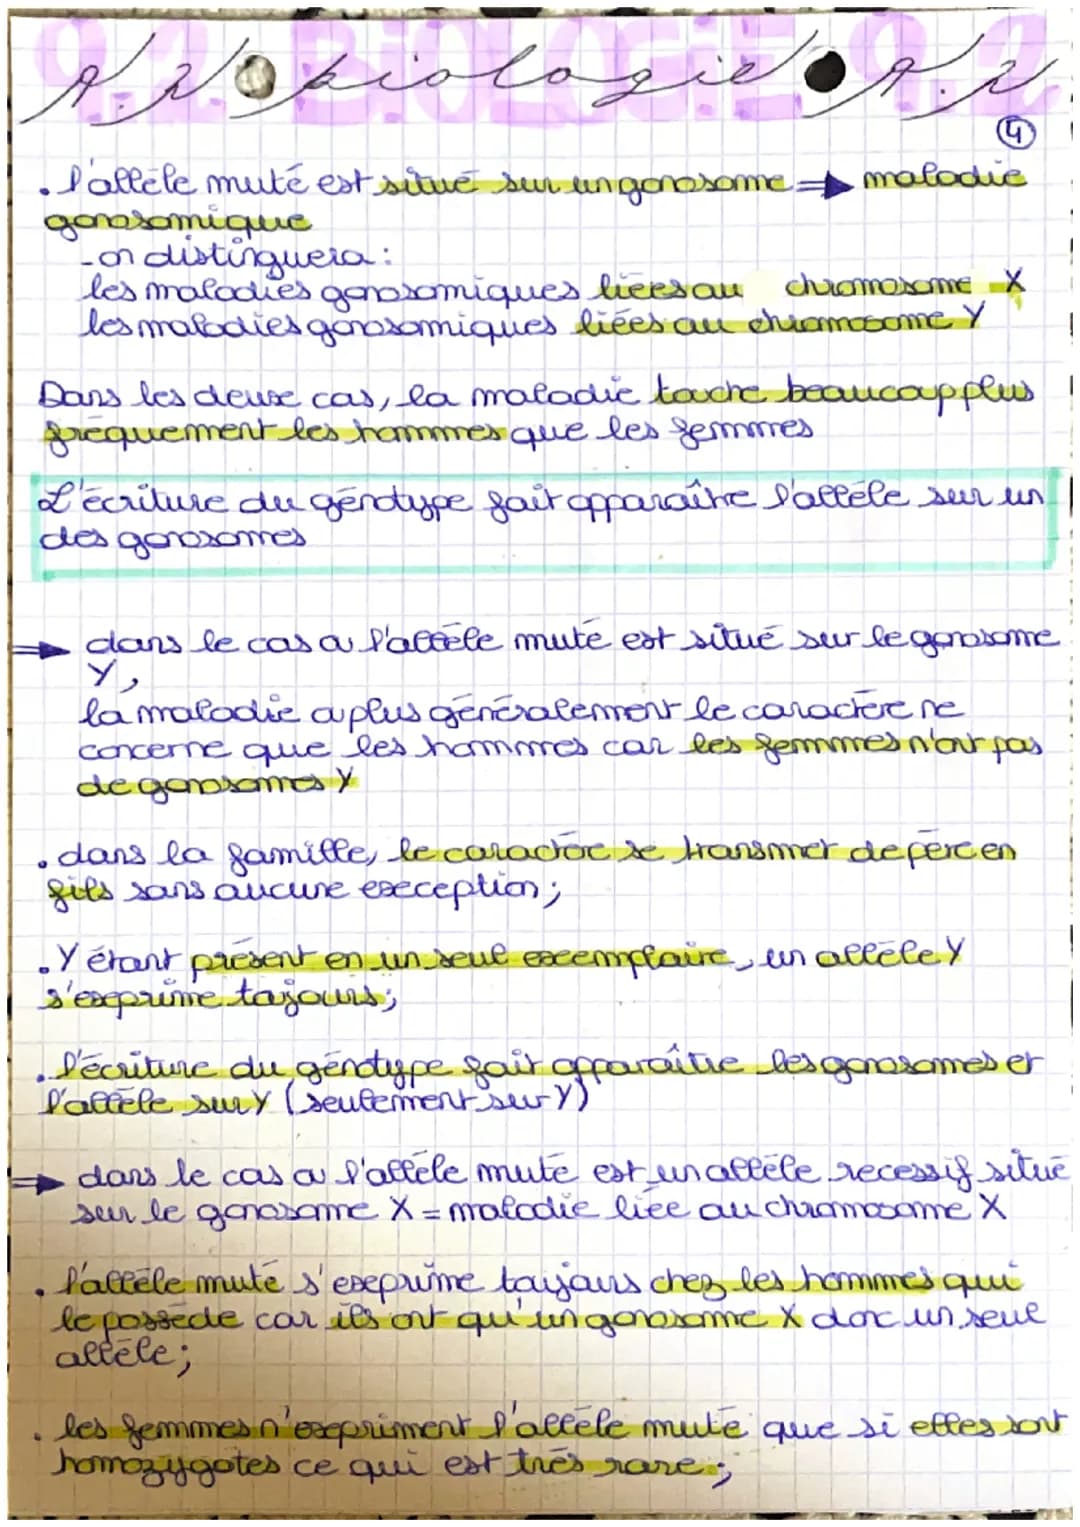 9.2 BiOLOGiE 9.2
9.2 biologie 9.2
4
. l'allèle muté est situé sur un gonosome ⇒ maladie
gonosomique
- on distinguera :
les maladies gonosomiques liées au chromosome X
les maladies gonosomiques liées au chromosome Y
Dans les deux cas, la maladie touche beaucoup plus
fréquemment les hommes que les femmes
L'écriture du génotype fait apparaître l'allèle sur un
des gonosomes
⇒ dans le cas où l'allèle muté est situé sur le gonosome
Y,
la maladie ou plus généralement le caractère ne
concerne que les hommes car les femmes n'ont pas
de gonosomes Y
. dans la famille, le caractère se transmet de père en
fils sans aucune exception ;
. Y étant présent en un seul exemplaire, un allèle Y
s'exprime toujours ;
. l'écriture du génotype fait apparaître les gonosomes et
l'allèle sur Y (seulement sur Y)
⇒ dans le cas où l'allèle muté est un allèle récessif situé
sur le gonosome X = maladie liée au chromosome X
. l'allèle muté s'exprime toujours chez les hommes qui
le possède car ils ont qu'un gonosome X donc un seul
allèle ;
. les femmes n'expriment l'allèle muté que si elles sont
homozygotes ce qui est très rare ;